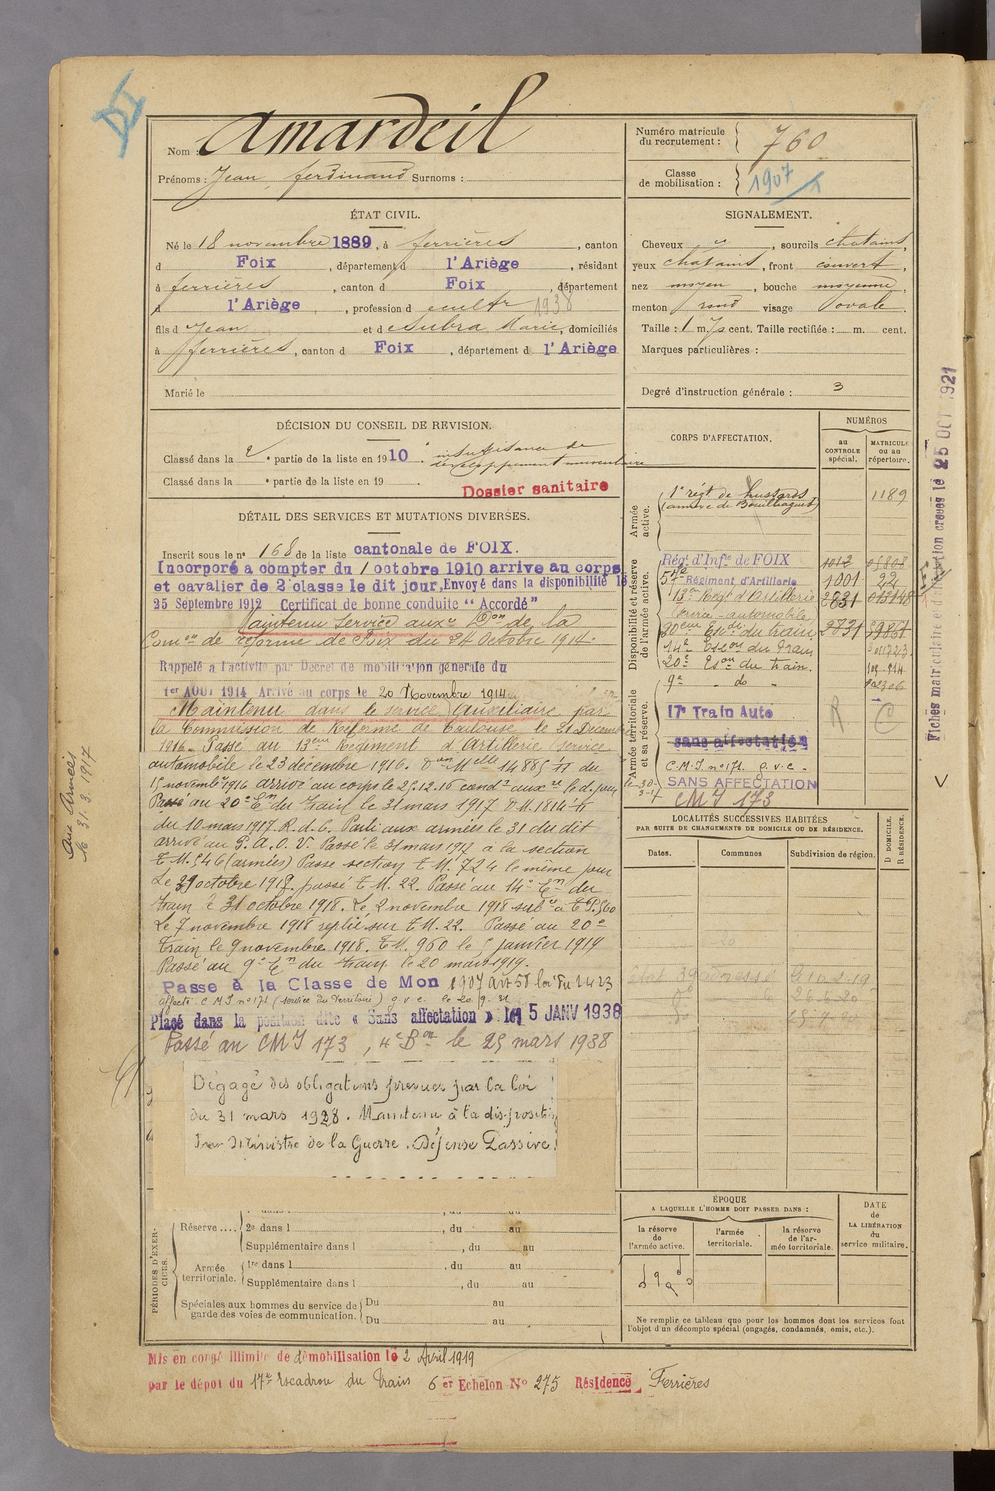 Nom : Amardeil
Prénoms : Jean, ferdinand Surnoms :
Numéro matricule du recrutement : 760
Classe de mobilisation : 1907
ÉTAT CIVIL.
Né le 18 novembre 1889, à ferrières, canton
d Foix, département d l'Ariège, résidant
à ferrières, canton d Foix, département
d l'Ariège, profession d cultr 1938
fils d Jean et de Subra Marie, domiciliés
à ferrières, canton d Foix, département d l'Ariège
Marié le
SIGNALEMENT.
Cheveux , sourcils chatains,
yeux chatains, front couvert,
nez moyen, bouche moyenne,
menton rond visage ovale.
Taille : 1 m. cent. Taille rectifiée : m. cent.
Marques particulières :
Degré d'instruction générale : 3
DÉCISION DU CONSEIL DE REVISION.
Classé dans la 2e partie de la liste en 1910. insuffisance de
développement musculaire
Classé dans la e partie de la liste en 19
Dossier sanitaire
DÉTAIL DES SERVICES ET MUTATIONS DIVERSES.
Inscrit sous le no 168 de la liste cantonale de FOIX.
Incorporé a compter du 1 octobre 1910 arrive au corps
et cavalier de 2e classe le dit jour, Envoyé dans la disponibilité le
25 Septembre 1912 Certificat de bonne conduite "Accordé"
Maintenu service auxre Don de la
Comon de réforme de Foix du 24 Octobre 1914.
Rappelé a l'activité par Decret de mobilisation générale du
1er AOUT 1914 Arrivé au corps le 20 Novembre 1914
Maintenu dans le service Auxiliaire par
la Commission de Réforme de Toulouse le 21 Décembre
1916. Passé au 13eme Régiment d'Artillerie (service
automobile le 23 decembre 1916. Don Melle 14885 du
15 novembre 1916 arrivé au corps le 25.12.16 condr auxre le d. jour
Passé au 20e Em du train le 31 mars 1917 D.M. 1814
du 10 mars 1917. R.d.C. Parti aux armées le 31 du dit
arrivé au P.A.O.V. Passé le 31 mars 1917 a la section
T.M. 546 (armées) Passé section T.M. 724 le même jour
Le 31 octobre 1917 passé T.M. 22. Passé au 14e Em du
train le 31 octobre 1918. Le 2 novembre 1918 sub. à T.P. 500
Le 7 novembre 1918 replié sur T.M. 22. Passé au 20e
Train le 9 novembre 1918. T.M. 960 le 5 janvier 1919
Passé au 9e Em du train le 20 mars 1919.
Passe à la Classe de Mon 1907 Art 58 loi du 1.4.23
affecté C.M.I. no 171 (service du territoire) g.v.c. le 20.9.
Placé dans la position dite « Sans affectation » le 15 JANV 1938
Passé au CMI 173, 4e Bon le 25 mars 1938
Dégagé des obligations prévues par la loi
du 31 mars 1928. Maintenu à la disposition
du Ministre de la Guerre. Défense Passive.
CORPS D'AFFECTATION.
NUMÉROS
au CONTROLE spécial.
MATRICULE ou au répertoire.
Armée active.
1er régt de hussards 1189
Disponibilité et réserve de l'armée active.
Régt d'Infie de FOIX 1012
57e Régiment d'Artillerie 1001 22
13e Regt d'Artillerie 2831
Service automobile
20eme Escdn du train 2831
14e Escon du Train
20e Eson du train.
9e do
Armée territoriale et sa réserve.
17e Train Auto
sans affectation
C.M.I. no 171. g.v.c.
SANS AFFECTATION
CMI 173
R C
LOCALITÉS SUCCESSIVES HABITÉES
PAR SUITE DE CHANGEMENTS DE DOMICILE OU DE RÉSIDENCE.
Dates. Communes Subdivision de région. D DOMICILE. R RÉSIDENCE.
ÉPOQUE
A LAQUELLE L'HOMME DOIT PASSER DANS :
la réserve de l'armée active.
l'armée territoriale.
la réserve de l'armée territoriale.
DATE de LA LIBÉRATION du service militaire.
Ne remplir ce tableau que pour les hommes dont les services font
l'objet d'un décompte spécial (engagés, condamnés, omis, etc.).
PÉRIODES D'EXERCICES.
Réserve .... 2e dans l , du au
Supplémentaire dans l , du au
Armée territoriale. 1re dans l , du au
Supplémentaire dans l , du au
Spéciales aux hommes du service de garde des voies de communication. Du au
Du au
Mis en congé illimité de démobilisation le 2 Avril 1919
par le dépot du 17e Escadron du Train 6er Echelon No 275 Résidence Ferrières
Aux Armées
le 31.3.1917
Fiches matriculaire et d'affectation créées le 25 OCT 1921